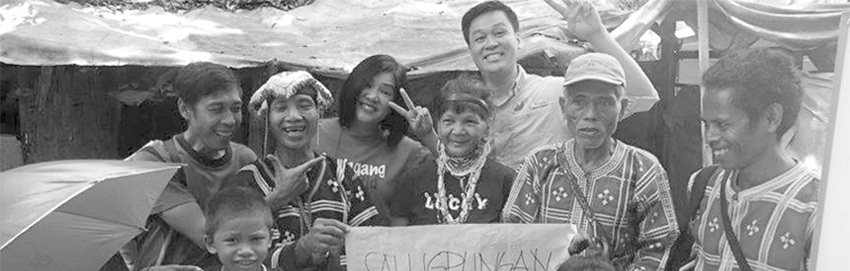 LUCKY
SALUGPUNGAN